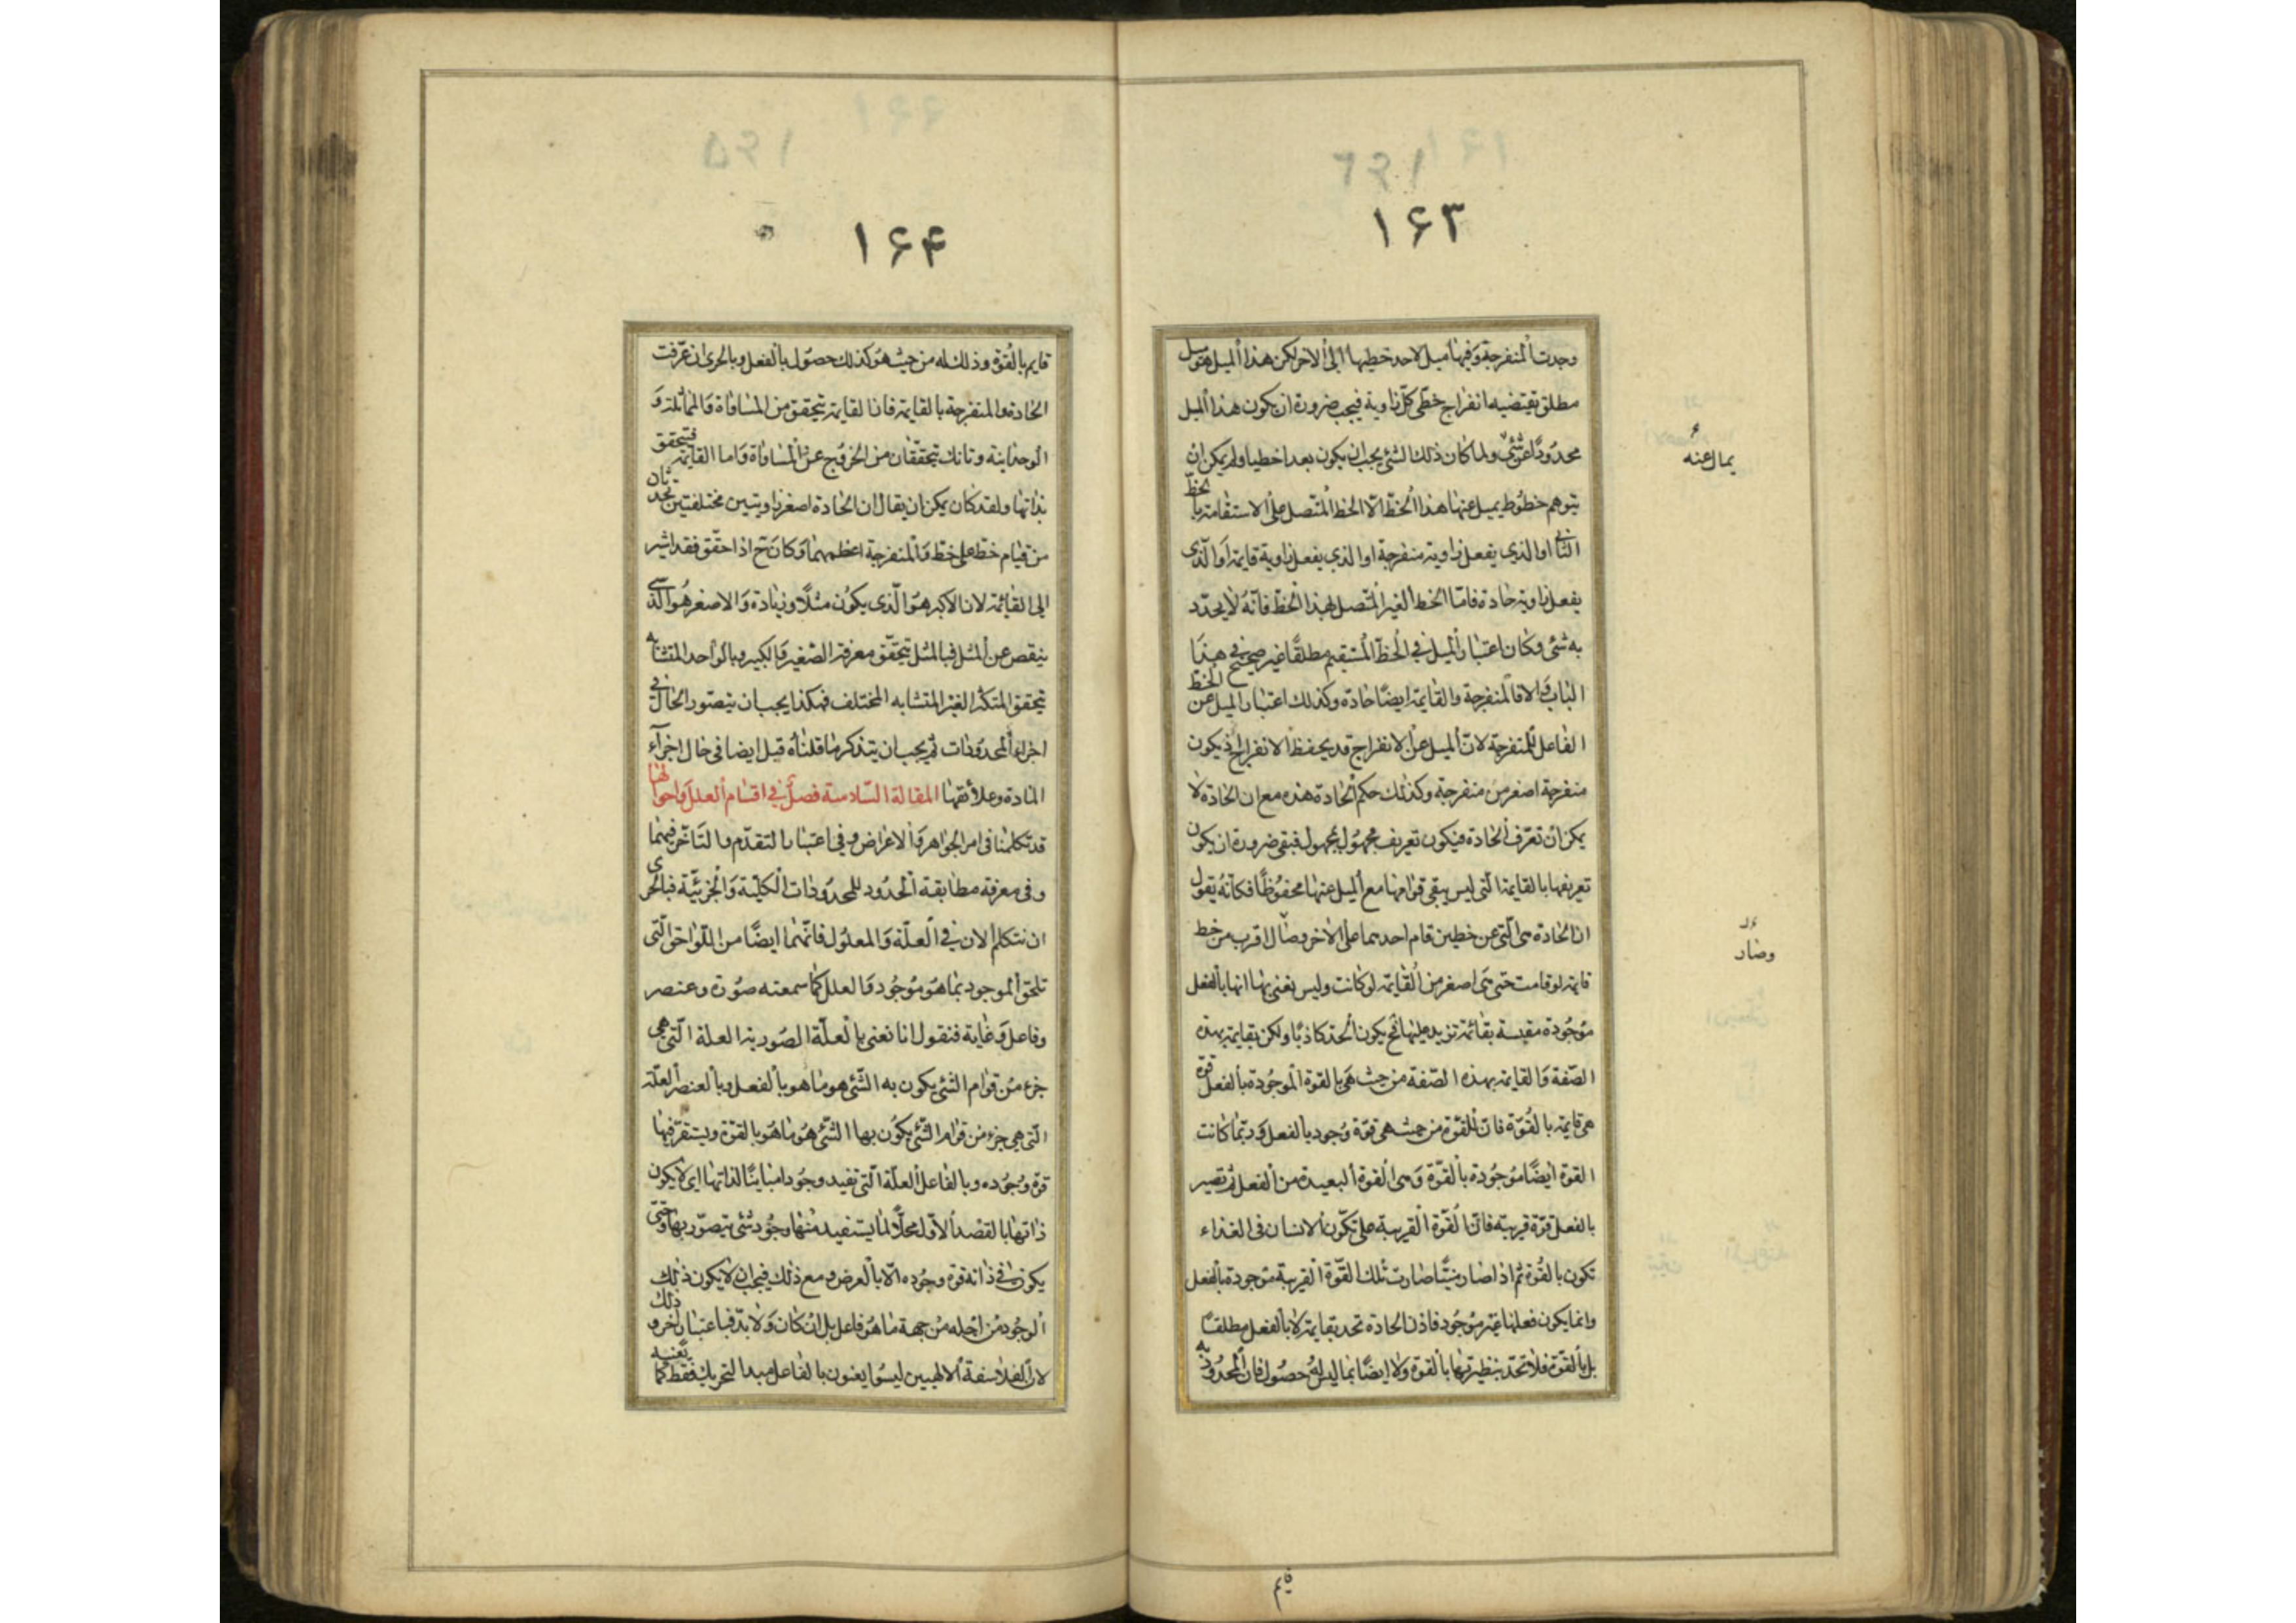 ۱۶۳
وجدت المنفرجة وفيها ميل لاحد خطيها الى الاخر لكن هذا الميل هو ميل
مطلق تقتضيه انفراج خطى كل زاوية فيجب ضرورة ان يكون هذا الميل
محدودا عن شئ ولما كان ذلك الشئ يجب ان يكون بعدا خطيا ولم يكن ان
يتوهم خطوط يميل عنها هذا الخط الا الخط المتصل على الاستقامة بالخط
الثانى او الذى يفعل زاوية منفرجة او الذى يفعل زاوية قايمة او الذى
يفعل زاوية حادة فاما الخط الغير المتصل بهذا الخط فانه لا يحدد
به شئ وكان اعتبار الميل فى الخط المستقيم مطلقا غير صحيح فى هذا
الباب والا فالمنفرجة والقايمة ايضا حادة وكذلك اعتبار الميل عن الخط
الفاعل للمنفرجة لان الميل عن الانفراج قد يحفظ الانفراج اذ يكون
منفرجة اصغر من منفرجة وكذلك حكم الحادة هذه مع ان الحادة لا
يمكن ان تعرف بالحادة فيكون تعريف مجهول بمجهول فبقى ضرورة ان يكون
تعريفها بالقايمة التى ليس يبقى قوامها مع الميل عنها محفوظا فكانه يقول
ان الحادة هى التى عن خطين قام احدهما على الاخر وصال اقرب من خط
قايمة لو قامت حتى هى اصغر من القايمة لو كانت وليس نعنى بها انها بالفعل
موجودة مقيسة بقائمة تزيد عليها فح يكون الحد كاذبا ولكن بقايمة بهذه
الصفة والقايمة بهذه الصفة من حيث هى بالقوة الموجودة بالفعل قوة
هى قايمة بالقوة فان للقوة من حيث هى قوة وجود بالفعل وربما كانت
القوة ايضا موجودة بالقوة وهى القوة البعيدة من الفعل ثم تصير
بالفعل قوة قريبة فان القوة القريبة على تكون الانسان فى الغذاء
تكون بالقوة ثم اذا صار منيا صارت تلك القوة القريبة موجودة بالفعل
وانما يكون فعلها غير موجود فاذن الحادة تحد بقايمة لا بالفعل مطلقا
بل بالقوة فلا تحد بنظيرتها بالقوة ولا ايضا بما ليس له حصول فان المحدود به
يمال عنه
وصار
۱۶۴
قايم بالقوة وذلك له من حيث هو كذلك حصول بالفعل وبالحرى ان عرفت
الحادة والمنفرجة بالقايمة فان القايمة تتحقق من المساواة والمماثلة و
الوحدانية وتانك تتحققان من الخروج عن المساواة واما القايمة فتتحقق
بذاتها ولقد كان يمكن ان يقال ان الحادة اصغر زاويتين مختلفتين تحدثان
من قيام خط على خط والمنفرجة اعظمهما وكان ح اذا حقق فقد اشير
الى القائمة لان الاكبر هو الذى يكون مثلا وزيادة والاصغر هو الذى
ينقص عن المثل فبالمثل تتحقق معرفة الصغير والكبير وبالواحد المتشابه
تتحقق المتكثر الغير المتشابه المختلف فهكذا يجب ان يتصور الحال فى
اجزاء المحدودات ثم يجب ان يتذكر ما قلناه قبل ايضا فى حال اجزاء
المادة وعلائقها المقالة السادسة فصل فى اقسام العلل واحوالها
قد تكلمنا فى امر الجواهر والاعراض وفى اعتبار التقدم والتاخر فيهما
وفى معرفة مطابقة الحدود للمحدودات الكلية والجزئية فبالحرى
ان نتكلم الان فى العلة والمعلول فانهما ايضا من اللواحق التى
تلحق الموجود بما هو موجود والعلل كما سمعته صورة وعنصر
وفاعل وغاية فنقول انا نعنى بالعلة الصورية العلة التى هى
جزء من قوام الشئ يكون به الشئ هو ما هو بالفعل وبالعنصر العلة
التى هى جزء من قوام الشئ يكون بها الشئ هو ما هو بالقوة ويستقر فيها
قوة وجوده وبالفاعل العلة التى تفيد وجودا مباينا لذاتها اى لا يكون
ذاتها بالقصد الاول محلا لما يستفيد منها وجود شئ يتصور بها وحتى
يكون فى ذاته قوة وجوده الا بالعرض ومع ذلك فيجب ان لا يكون ذلك
الوجود من اجله من جهة ما هو فاعل بل ان كان ولا بد فباعتبار اخر وذلك
لان الفلاسفة الالهيين ليسوا يعنون بالفاعل مبدا التحريك فقط كما يعنيه